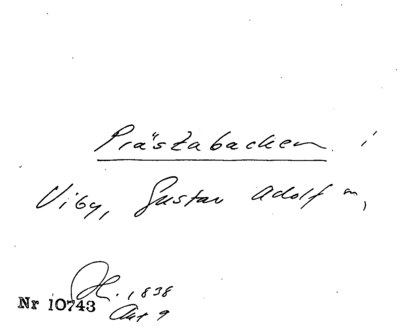 Prästabacken i
Viby, Gustav Adolf m,
H. 1838
Nr 10743 Akt 9